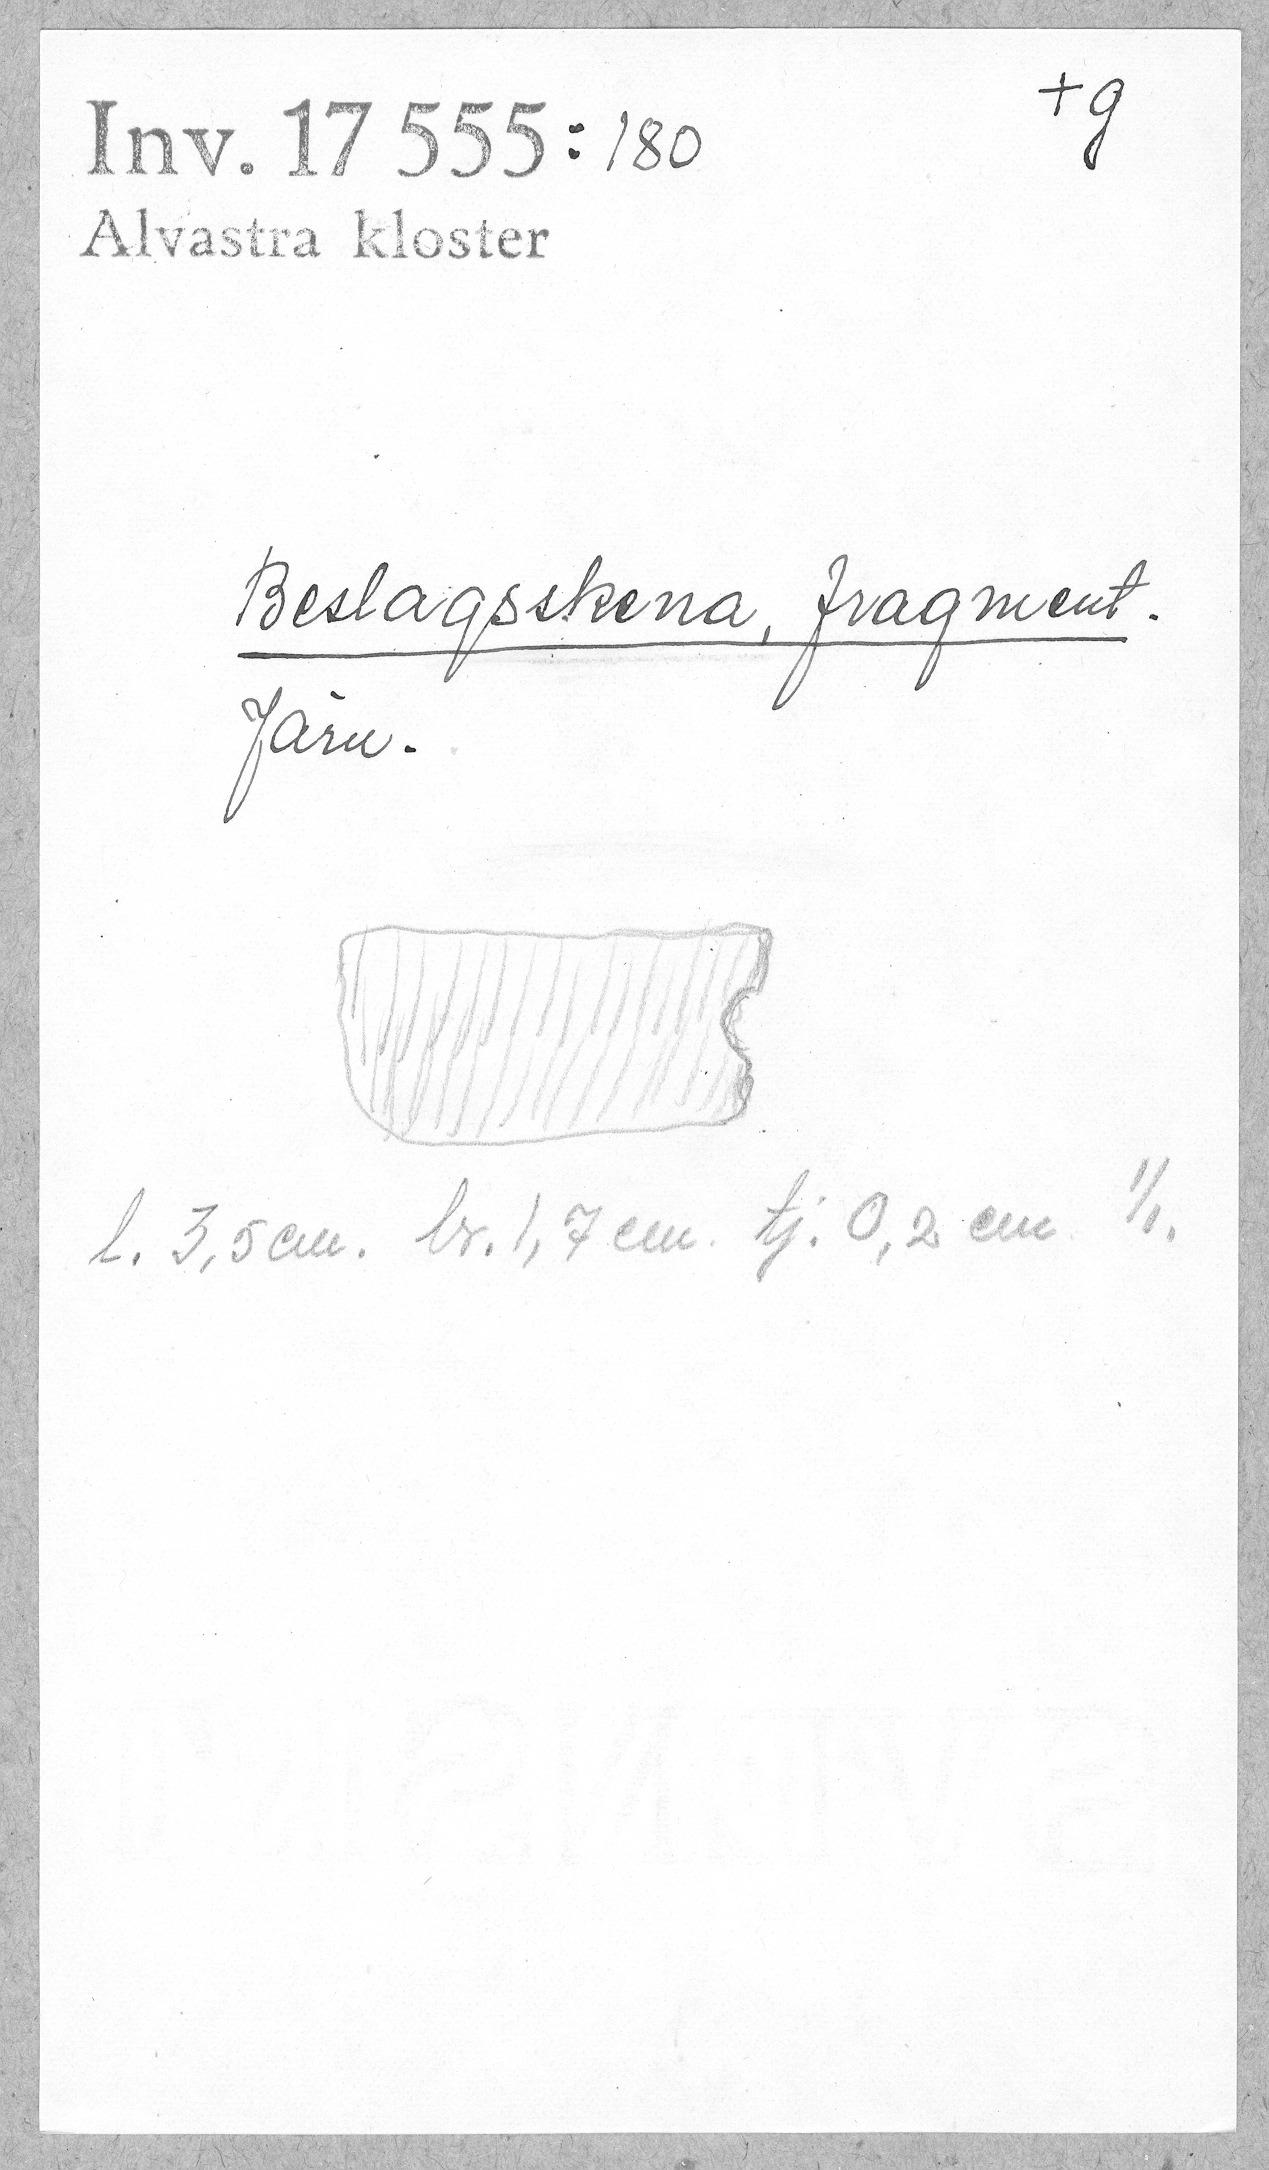 Inv. 17 555:180
+g
Alvastra kloster
Beslagsskena, fragment.
Järn.
l. 3,5 cm. br. 1,7 cm. tj. 0,2 cm 1/1.